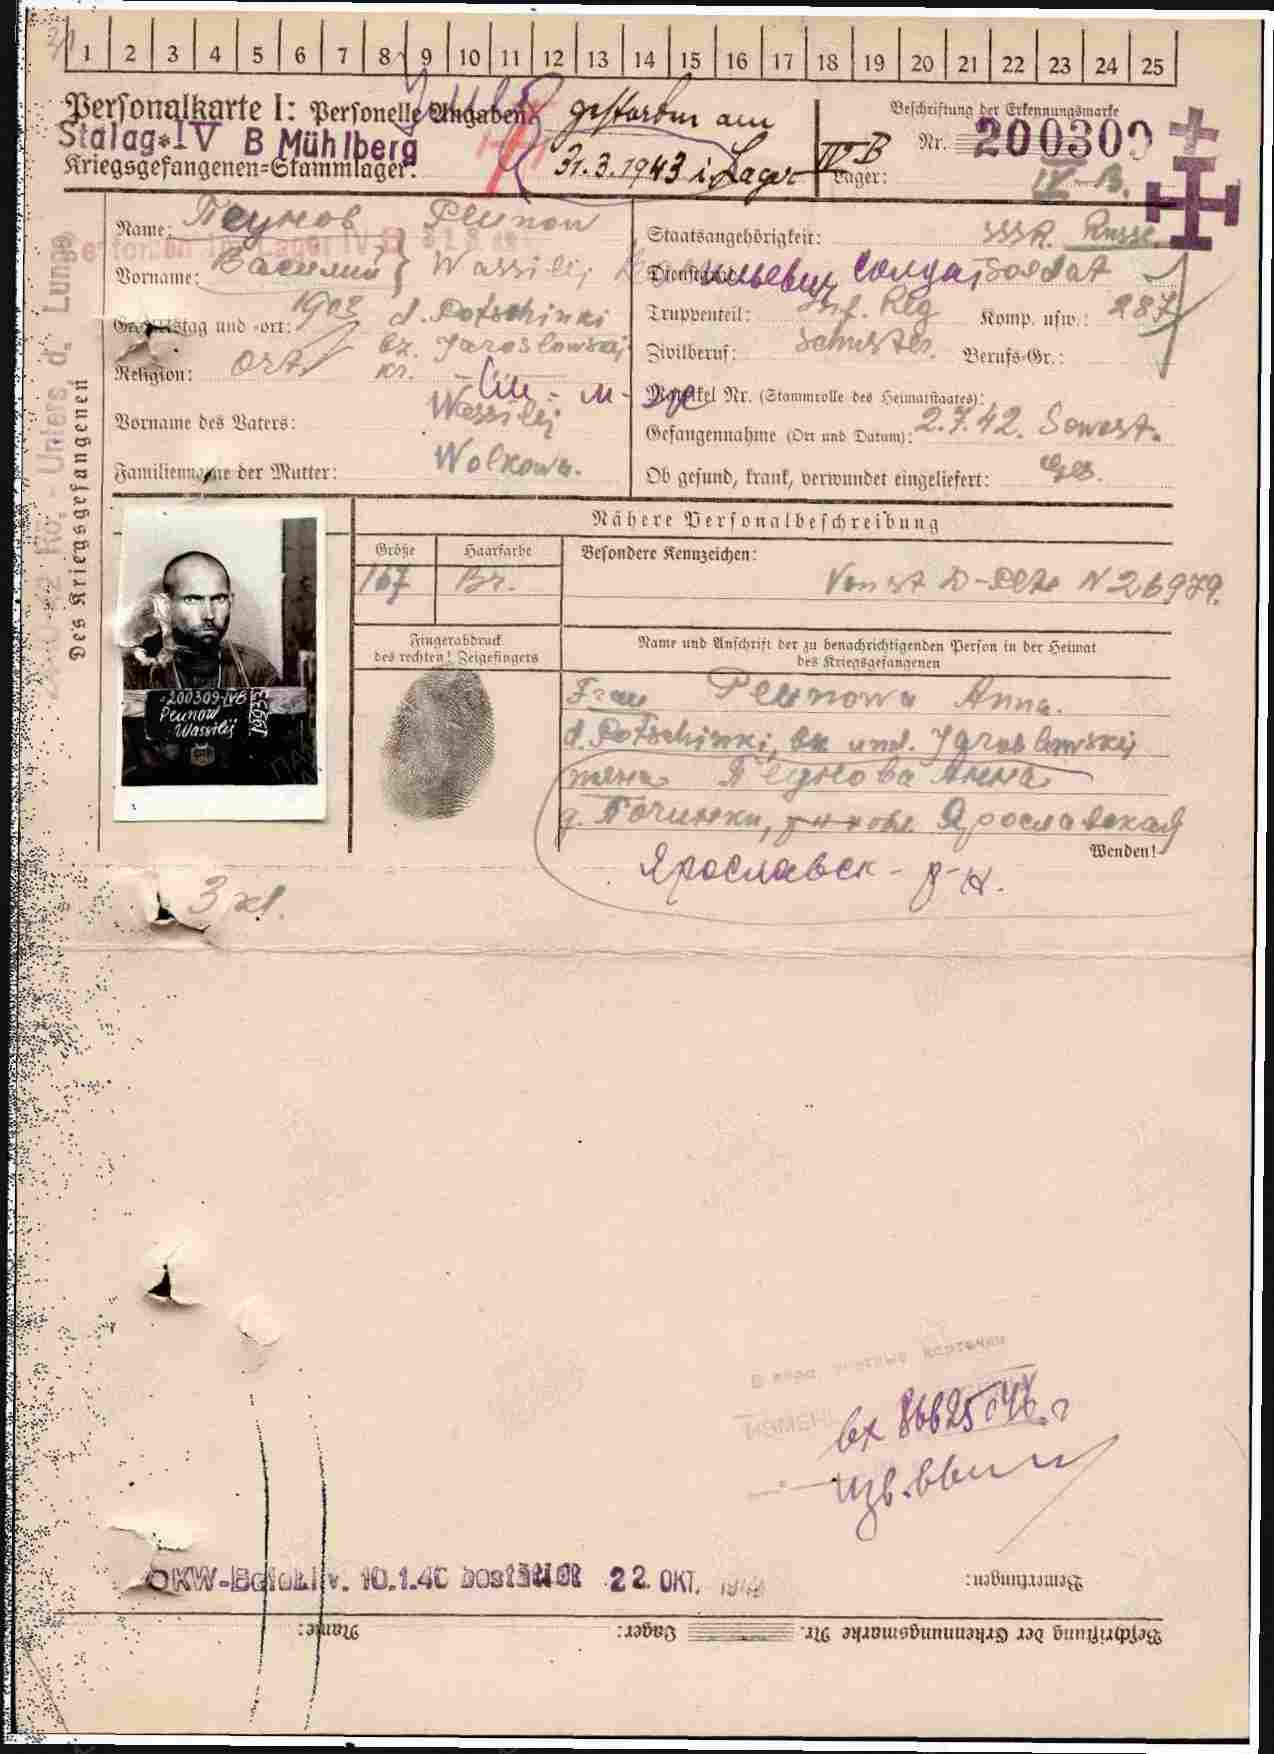 1 2 3 4 5 6 7 8 9 10 11 12 13 14 15 16 17 18 19 20 21 22 23 24 25
Personalkarte I: Personelle Angaben
gestorben am
31.3.1943 i. Lager IV B
Beschriftung der Erkennungsmarke
Stalag IV B Mühlberg
Nr. 200309
Kriegsgefangenen-Stammlager:
Lager: IV-B.
Des Kriegsgefangenen
Unters. d. Lunge
Name: Пеунов Peunow
Vorname: Василий Wassilij
Geburtstag und -ort: 1903 d. Potschinki
bz. Jaroslowskij
Religion: Ort kr. -
Vorname des Vaters: Wassilij
Familienname der Mutter: Wolkowa.
Staatsangehörigkeit: SSSR. Russe.
Dienstgrad: солдат Soldat
Truppenteil: Inf. Reg Komp. usw.: 287
Zivilberuf: Schuster. Berufs-Gr.:
Matrikel Nr. (Stammrolle des Heimatstaates):
Gefangennahme (Ort und Datum): 2.7.42. Sewast.
Ob gesund, krank, verwundet eingeliefert: Ges.
Nähere Personalbeschreibung
Größe Haarfarbe Besondere Kennzeichen:
167 Br.
N 26979.
Fingerabdruck
des rechten! Zeigefingers
Name und Anschrift der zu benachrichtigenden Person in der Heimat
des Kriegsgefangenen
200309-IVB
Peunow
Wassilij
Frau Peunowa Anna.
d. Potschinki, Jaroslowskij
жена Пеунова Анна
д. Починки, обл. Ярославская
Wenden!
Ярославск - р-н.
3 хл.
вх 86625
OKW-Befehl v. 10.1.40 22. OKT.
Bemerkungen:
Beschriftung der Erkennungsmarke Nr. Lager: Name: